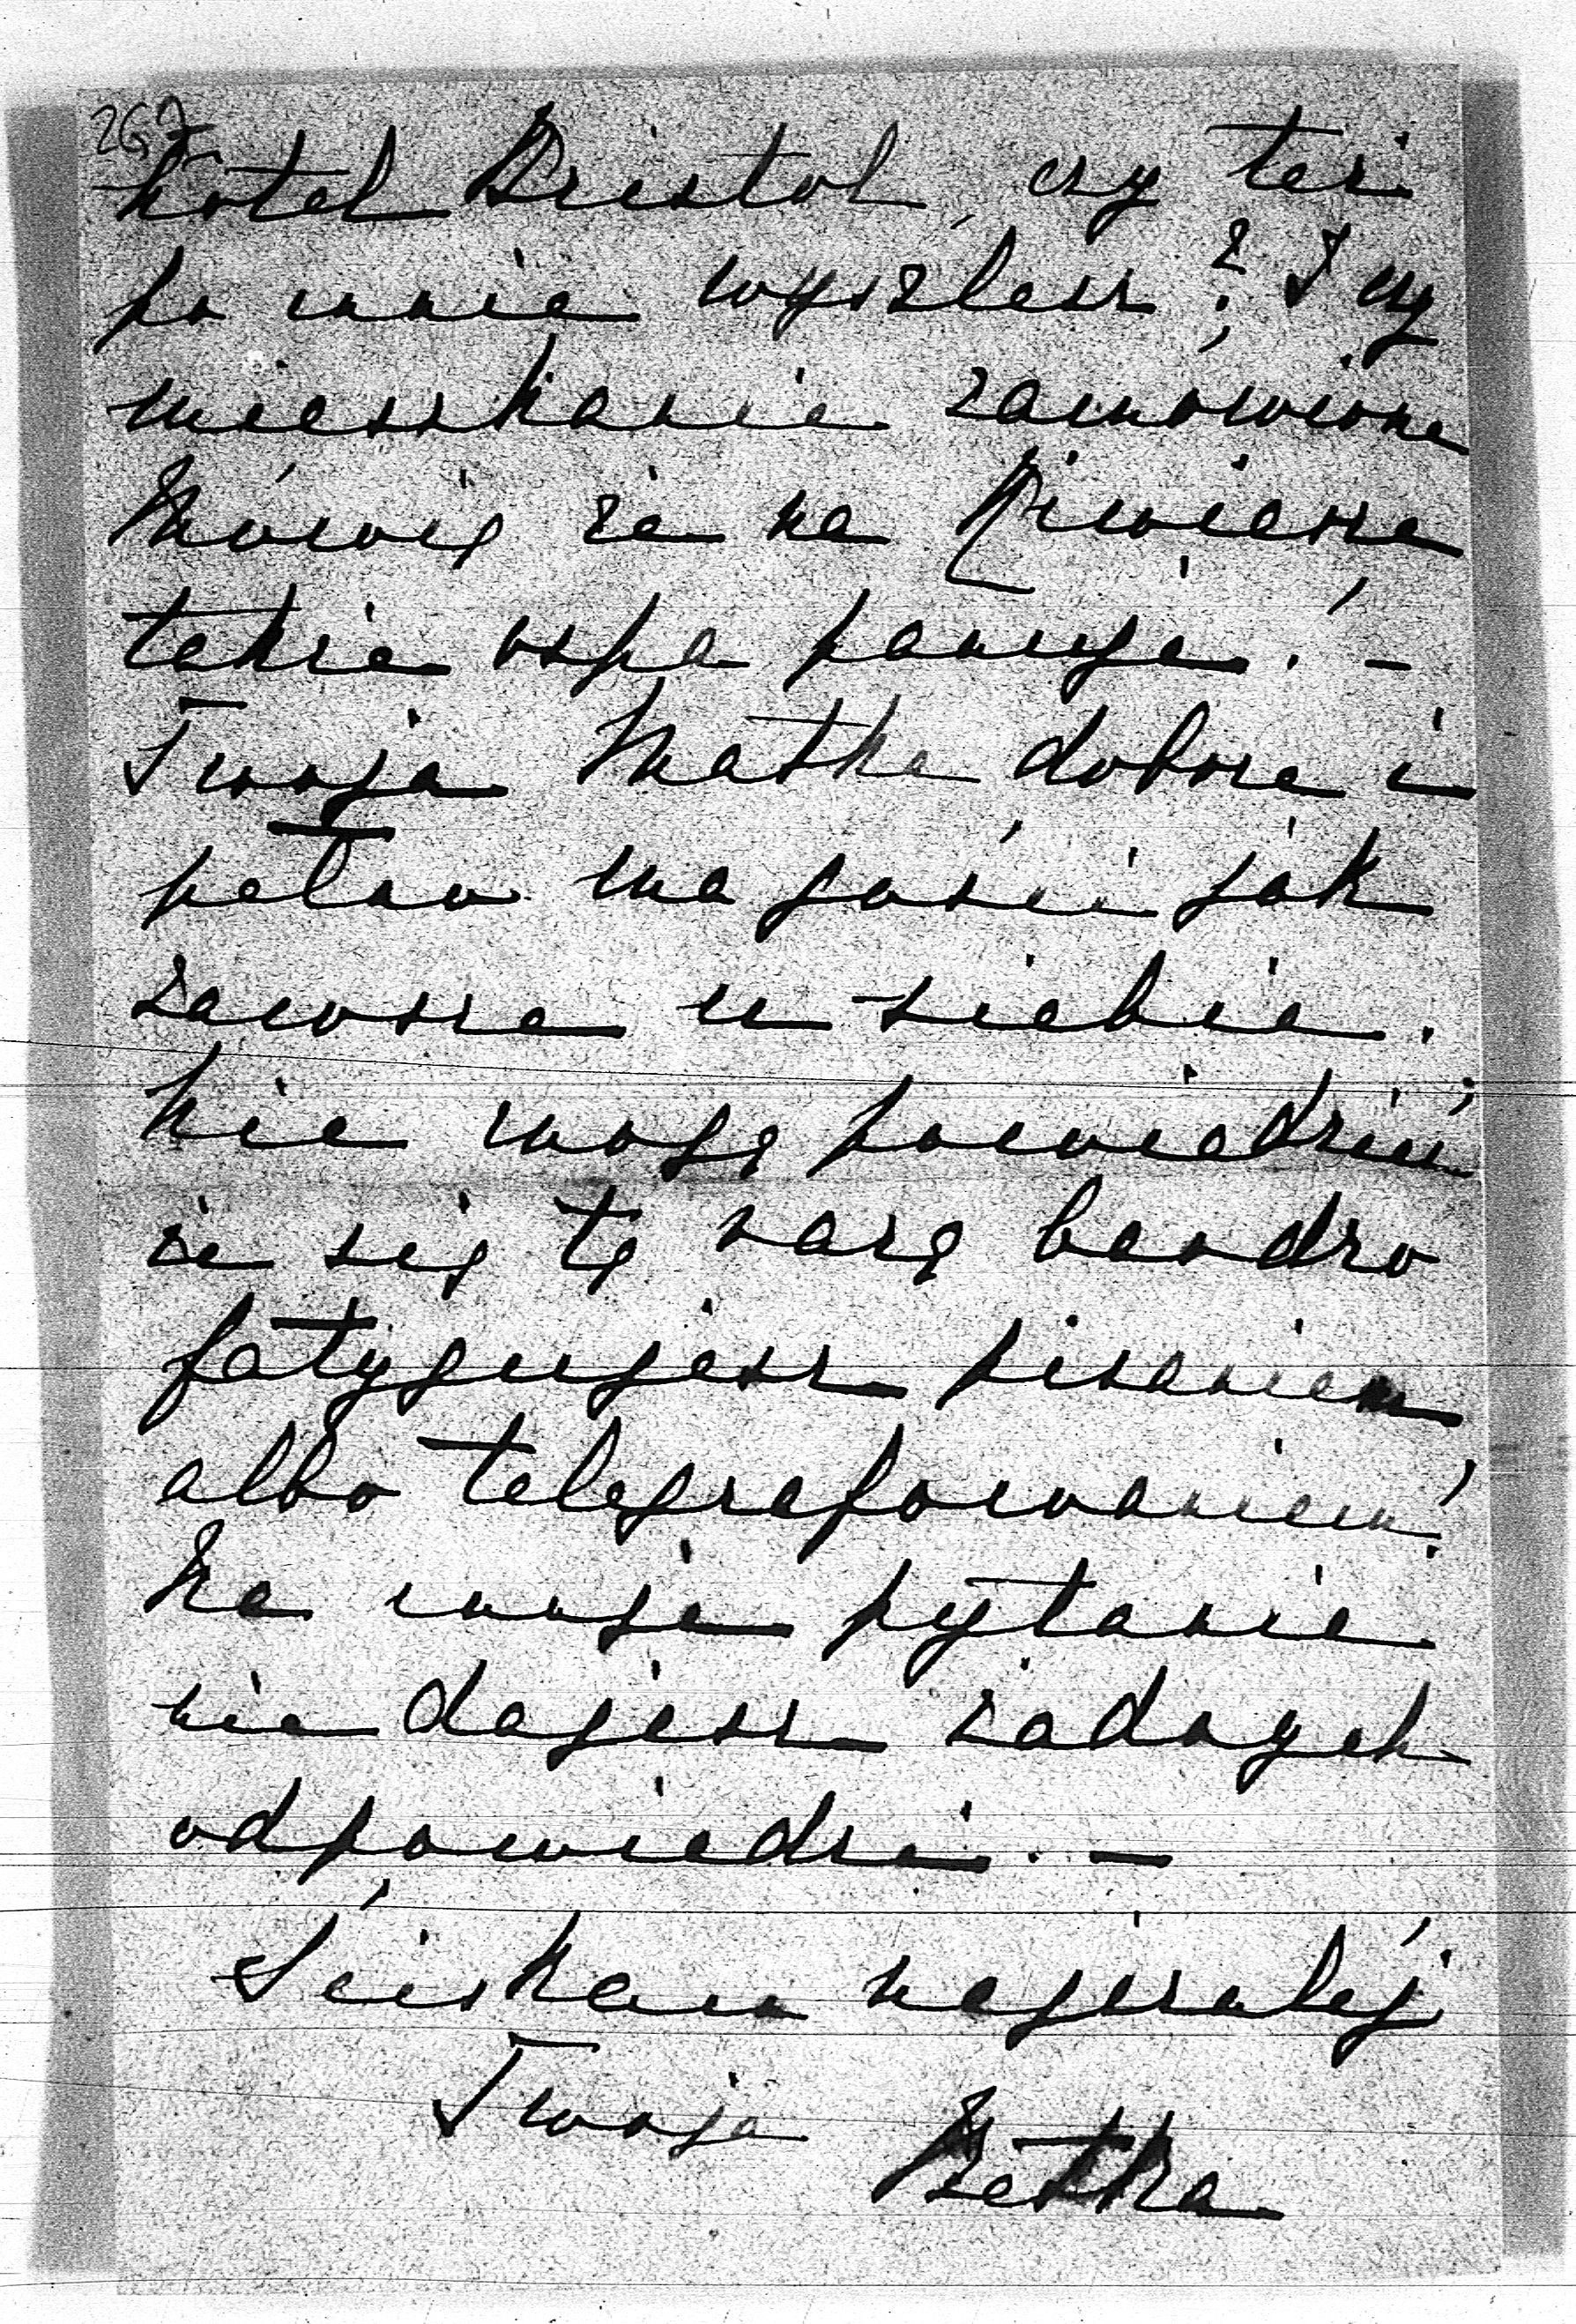 267
hotel Bristol, czy też
po mnie wyszlesz? I czy
mieszkanie zamówione
Mówią że na Riwierze
także ospa panuje. –
Twoja Matka, dobrze i
pełno ma gości jak
zawsze u siebie.
Nie mogę powiedzieć,
że się tą razą bardzo
fatygujesz pisaniem
albo telegrafowaniem!
Na moje pytanie
nie dajesz żadnych
odpowiedzi. –
Ściskam najczulej
Twoja Betka